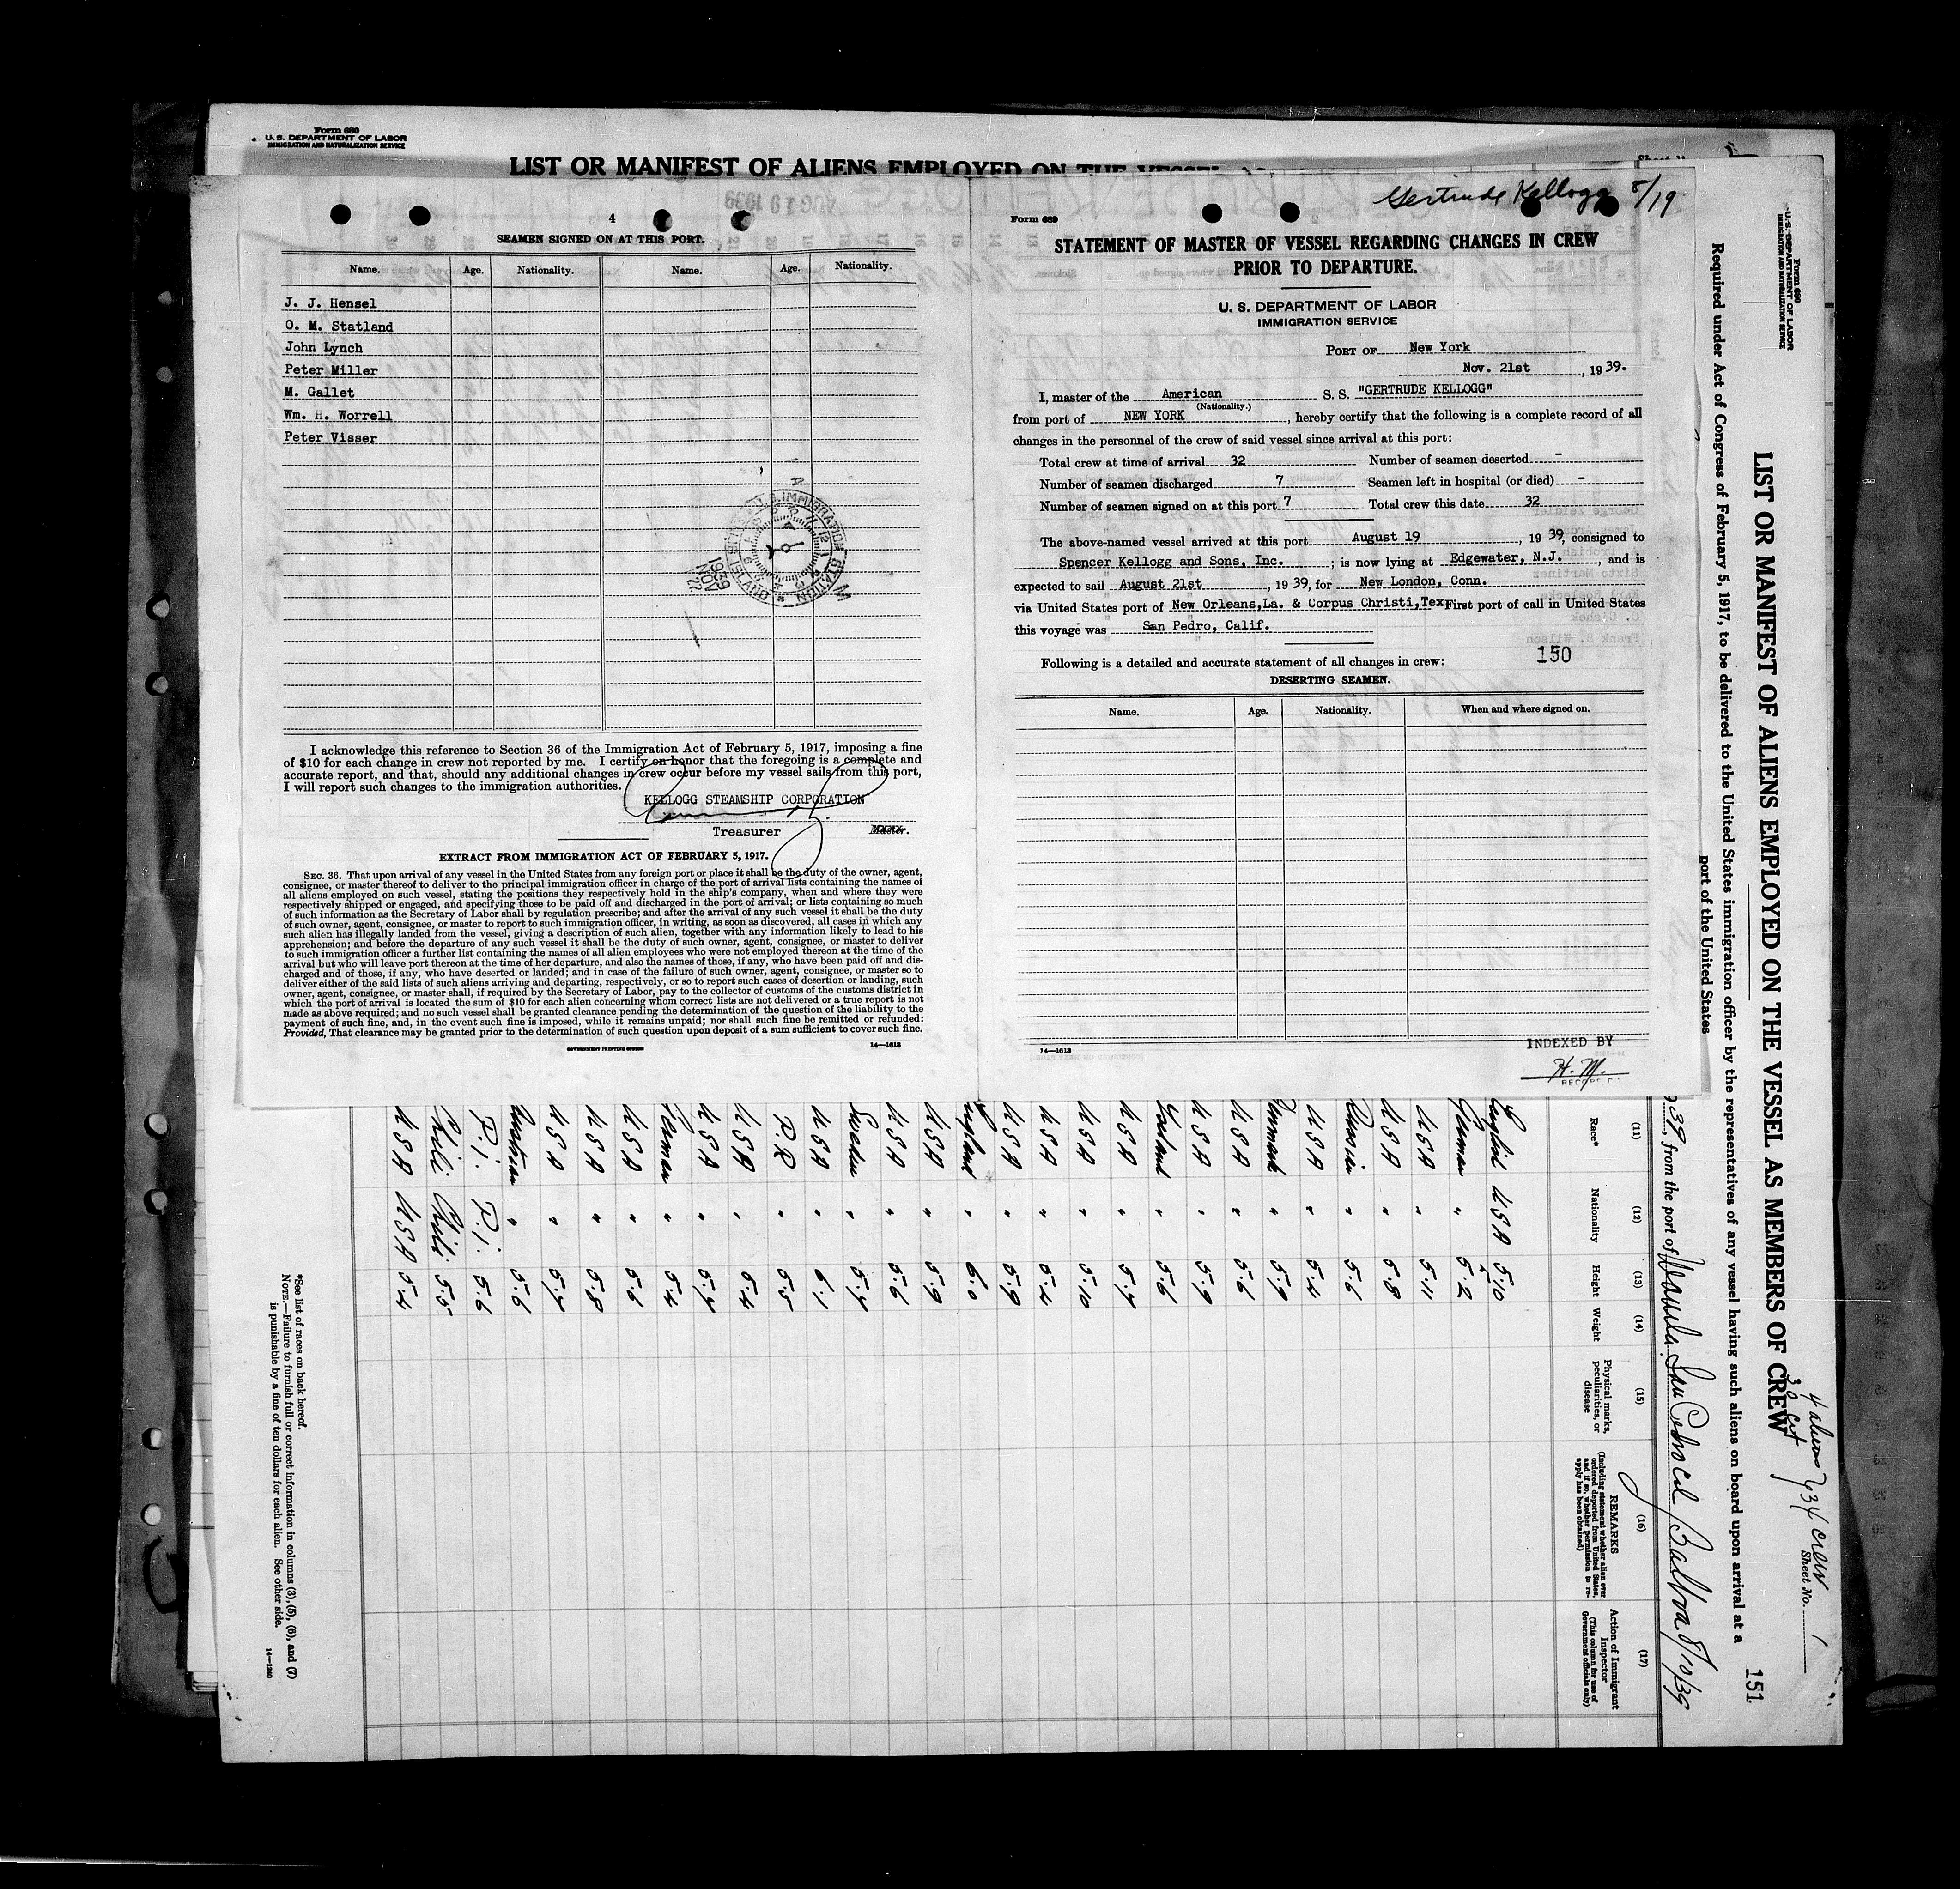 Form 680
U. S. DEPARTMENT OF LABOR
IMMIGRATION AND NATURALIZATION SERVICE
LIST OR MANIFEST OF ALIENS EMPLOYED ON THE VESSEL
4
SEAMEN SIGNED ON AT THIS PORT.
Name. Age. Nationality. Name. Age. Nationality.
J. J. Hensel
O. M. Statland
John Lynch
Peter Miller
M. Gallet
Wm. H. Worrell
Peter Visser
U.S. IMMIGRATION STATION
1939 NOV 22
I acknowledge this reference to Section 36 of the Immigration Act of February 5, 1917, imposing a fine
of $10 for each change in crew not reported by me. I certify on honor that the foregoing is a complete and
accurate report, and that, should any additional changes in crew occur before my vessel sails from this port,
I will report such changes to the immigration authorities.
KELLOGG STEAMSHIP CORPORATION
Treasurer Master.
EXTRACT FROM IMMIGRATION ACT OF FEBRUARY 5, 1917.
SEC. 36. That upon arrival of any vessel in the United States from any foreign port or place it shall be the duty of the owner, agent,
consignee, or master thereof to deliver to the principal immigration officer in charge of the port of arrival lists containing the names of
all aliens employed on such vessel, stating the positions they respectively hold in the ship's company, when and where they were
respectively shipped or engaged, and specifying those to be paid off and discharged in the port of arrival; or lists containing so much
of such information as the Secretary of Labor shall by regulation prescribe; and after the arrival of any such vessel it shall be the duty
of such owner, agent, consignee, or master to report to such immigration officer, in writing, as soon as discovered, all cases in which any
such alien has illegally landed from the vessel, giving a description of such alien, together with any information likely to lead to his
apprehension; and before the departure of any such vessel it shall be the duty of such owner, agent, consignee, or master to deliver
to such immigration officer a further list containing the names of all alien employees who were not employed thereon at the time of the
arrival but who will leave port thereon at the time of her departure, and also the names of those, if any, who have been paid off and dis-
charged and of those, if any, who have deserted or landed; and in case of the failure of such owner, agent, consignee, or master so to
deliver either of the said lists of such aliens arriving and departing, respectively, or so to report such cases of desertion or landing, such
owner, agent, consignee, or master shall, if required by the Secretary of Labor, pay to the collector of customs of the customs district in
which the port of arrival is located the sum of $10 for each alien concerning whom correct lists are not delivered or a true report is not
made as above required; and no such vessel shall be granted clearance pending the determination of the question of the liability to the
payment of such fine, and, in the event such fine is imposed, while it remains unpaid; nor shall such fine be remitted or refunded:
Provided, That clearance may be granted prior to the determination of such question upon deposit of a sum sufficient to cover such fine.
GOVERNMENT PRINTING OFFICE 14—1613
Gertrude Kellogg 8/19
Form 689
STATEMENT OF MASTER OF VESSEL REGARDING CHANGES IN CREW
PRIOR TO DEPARTURE.
U. S. DEPARTMENT OF LABOR
IMMIGRATION SERVICE
PORT OF New York
Nov. 21st, 1939.
I, master of the American S. S. "GERTRUDE KELLOGG"
(Nationality.)
from port of NEW YORK, hereby certify that the following is a complete record of all
changes in the personnel of the crew of said vessel since arrival at this port:
Total crew at time of arrival 32 Number of seamen deserted -
Number of seamen discharged 7 Seamen left in hospital (or died) -
Number of seamen signed on at this port 7 Total crew this date 32
The above-named vessel arrived at this port August 19, 1939, consigned to
Spencer Kellogg and Sons, Inc.; is now lying at Edgewater, N.J., and is
expected to sail August 21st, 1939, for New London, Conn.
via United States port of New Orleans,La. & Corpus Christi,Tex. First port of call in United States
this voyage was San Pedro, Calif.
150
Following is a detailed and accurate statement of all changes in crew:
DESERTING SEAMEN.
Name. Age. Nationality. When and where signed on.
14—1613
INDEXED BY
H. M.
Form 680
U. S. DEPARTMENT OF LABOR
IMMIGRATION AND NATURALIZATION SERVICE
4 aliens
30 cit
34 crew
Sheet No. 1
LIST OR MANIFEST OF ALIENS EMPLOYED ON THE VESSEL AS MEMBERS OF CREW
151
Required under Act of Congress of February 5, 1917, to be delivered to the United States immigration officer by the representatives of any vessel having such aliens on board upon arrival at a
port of the United States
39, from the port of Balboa 8/10/39
(11) (12) (13) (14) (15) (16) (17)
Race* Nationality Height Weight Physical marks, peculiarities, or disease
REMARKS
(Including statement whether alien ever ordered deported from United States, and if so, whether permission to re-apply has been obtained)
Action of Immigrant Inspector
(This column for use of Government officials only)
English USA 5.10
German " 5.2
USA " 5.11
USA " 5.8
Russian " 5.6
USA " 5.4
Denmark " 5.9
USA " 5.6
USA " 5.9
" 5.6
USA " 5.7
USA " 5.10
USA " 5.4
USA " 5.9
England " 6.0
USA " 5.9
USA " 5.6
Sweden " 5.7
USA " 6.1
P.R " 5.5
USA " 5.4
USA " 5.7
German " 5.4
USA " 5.6
USA " 5.8
USA " 5.7
Austrian " 5.6
P.I. P.I. 5.6
Chili Chili 5.5
USA USA 5.4
*See list of races on back hereof.
NOTE.—Failure to furnish full or correct information in columns (3), (5), (6), and (7)
is punishable by a fine of ten dollars for each alien. See other side.
14—1240